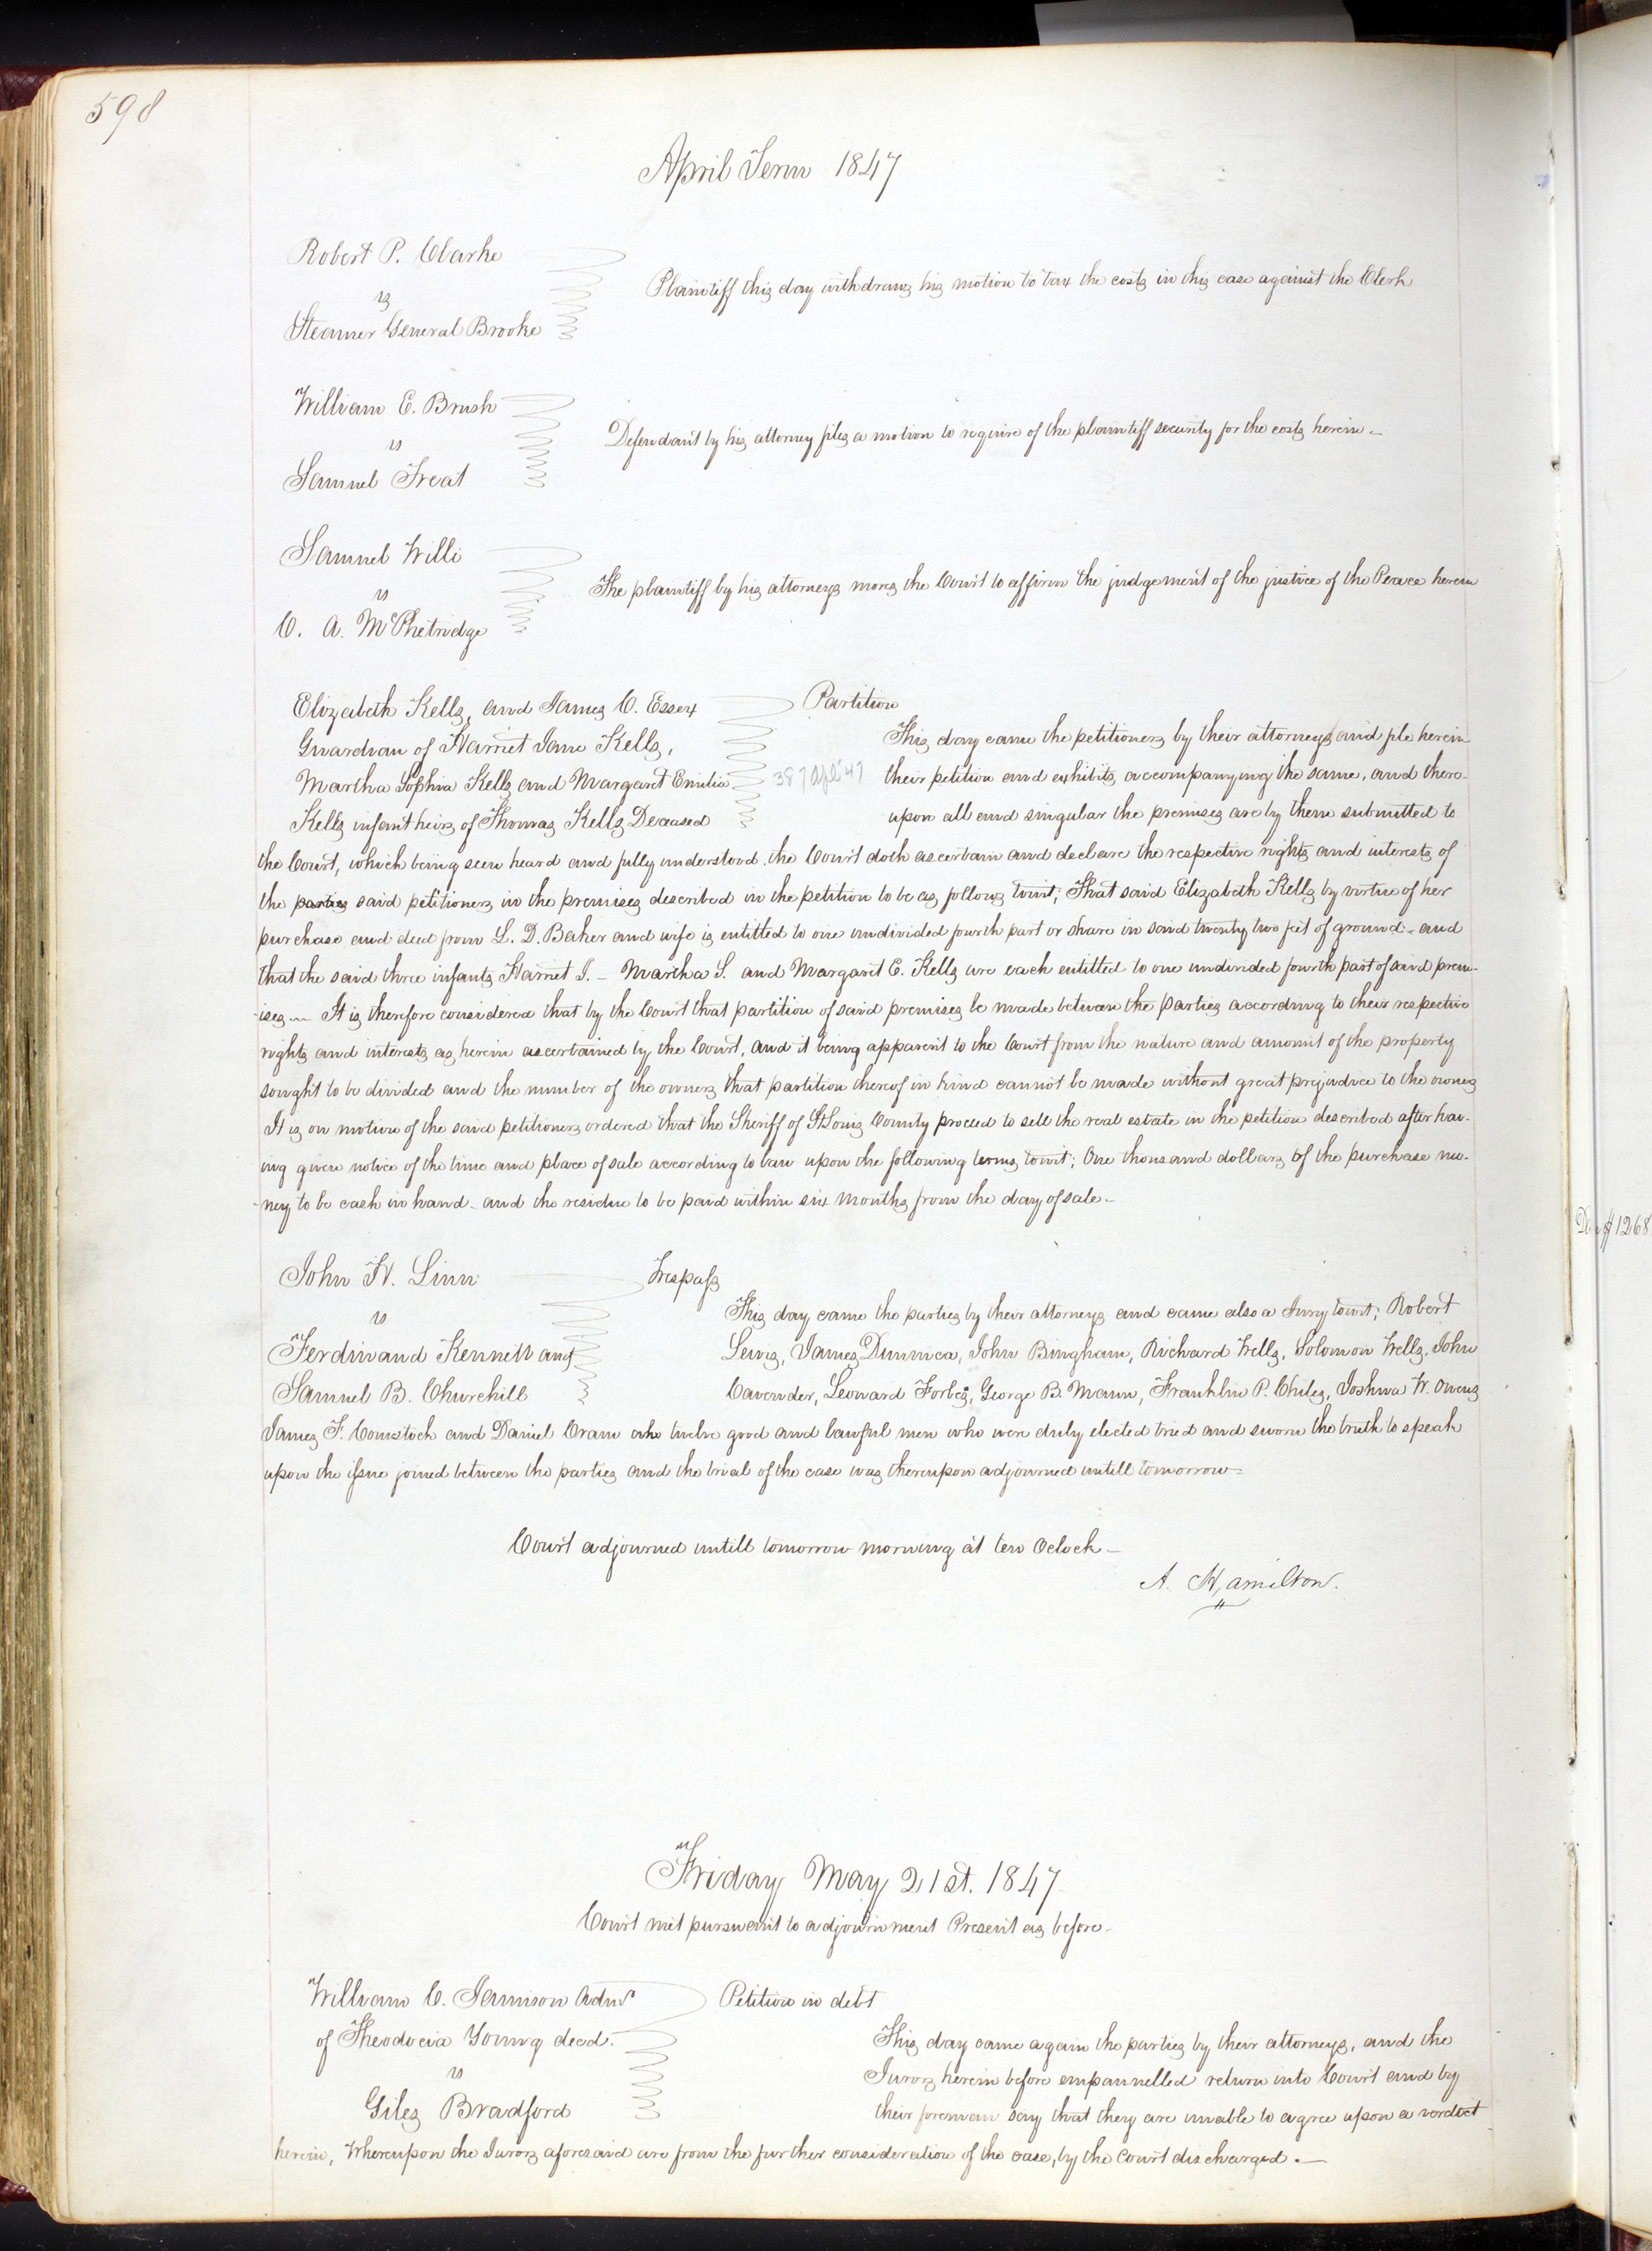 598
April Term 1847
Robert P. Clarke
vs
Steamer General Brooke
Plaintiff this day withdraws his motion to tax the costs in this case against the Clerk
William E. Brush
vs
Samuel Treat
Defendant by his attorney files a motion to require of the plaintiff security for the costs herein
Samuel Willi
vs
C. A. McPhetridge
The plaintiff by his attorneys moves the Court to affirm the judgement of the justice of the Peace herein
Elizabeth Kells, and James C. Essex
Guardian of Harriet Jane Kells,
Martha Sophia Kells and Margaret Emilia
Kells infant heirs of Thomas Kells Deceased
387 Apl '47
Partition
This day came the petitioners by their attorneys and file herein
their petition and exhibits accompanying the same, and there-
upon all and singular the premises are by them submitted to
the Court, which being seen heard and fully understood. the Court doth ascertain and declare the respective rights and interests of
the parties said petitioners in the premises described in the petition to be as follows towit; That said Elizabeth Kells by virtue of her
purchase and deed from L. D. Baker and wife is entitled to one undivided fourth part or share in said twenty two feet of ground - and
that the said three infants Harriet J. - Martha S. and Margaret E. Kells are each entitled to one undivided fourth part of said prem-
-ises - It is therefore considered that by the Court that partition of said premises be made between the parties according to their respective
rights and interests as herein ascertained by the Court, and it being apparent to the Court from the nature and amount of the property
sought to be divided and the number of the owners that partition thereof in kind cannot be made without great prejudice to the owners
It is on motion of the said petitioners ordered that the Sheriff of St Louis County proceed to sell the real estate in the petition described after hav-
ing given notice of the time and place of sale according to law upon the following terms towit; One thousand dollars of the purchase mo-
-ney to be cash in hand - and the residue to be paid within six months from the day of sale -
John H. Linn
vs
Ferdinand Kennett and
Samuel B. Churchill
Trespass
This day came the parties by their attorneys and came also a Jury towit; Robert
Lewis, James Dunnica, John Bingham, Richard Wells, Solomon Wells, John
Cavender, Leonard Forbes, George B. Mann, Franklin P. Chiles, Joshua W. Owens
James F. Comstock and Daniel Oram who twelve good and lawful men who were duly elected tried and sworn the truth to speak
upon the issue joined between the parties and the trial of the case was thereupon adjourned untill tomorrow -
Court adjourned untill tomorrow morning at ten Oclock -
A. Hamilton.
Friday May 21st. 1847
Court met pursuant to adjournment Present as before -
William C. Jamison Admr
of Theodocia Young decd.
vs
Giles Bradford
Petition in debt
This day came again the parties by their attorneys, and the
Jurors herein before empannelled return into Court and by
their foreman say that they are unable to agree upon a verdict
herein, Whereupon the Jurors aforesaid are from the further consideration of the case, by the Court discharged. -
$1268